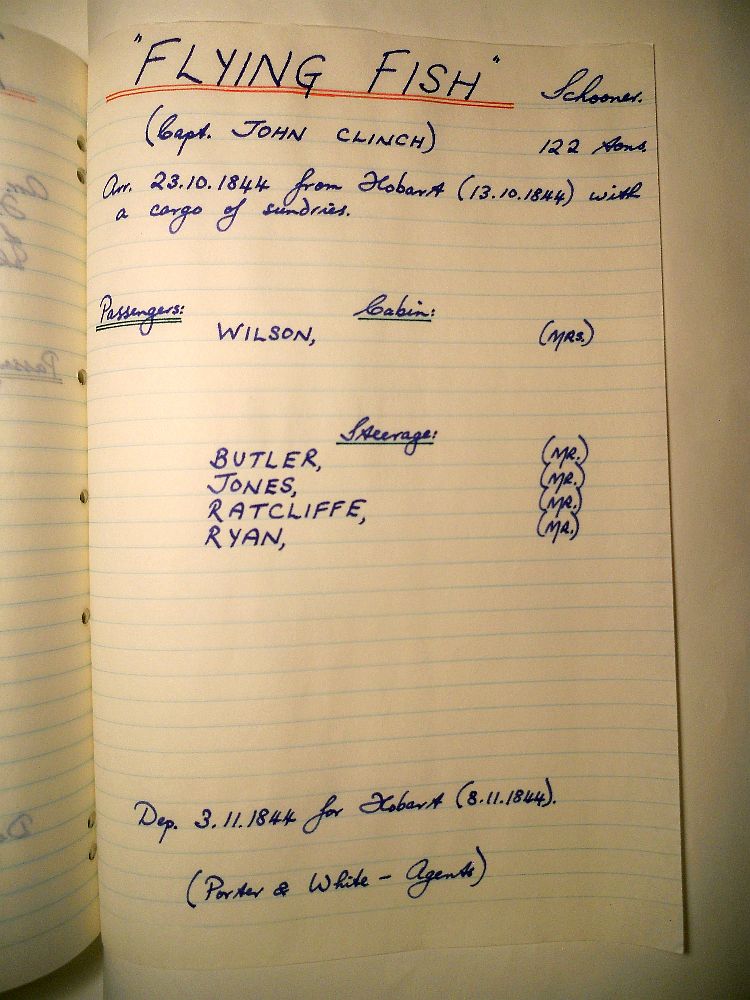 "FLYING FISH" Schooner.
(Capt. JOHN CLINCH) 122 tons.
Arr. 23.10.1844 from Hobart (13.10.1844) with
a cargo of sundries.
Passengers: Cabin:
WILSON, (MRS.)
Steerage:
BUTLER, (MR.)
JONES, (MR.)
RATCLIFFE, (MR.)
RYAN, (MR.)
Dep. 3.11.1844 for Hobart (8.11.1844).
(Porter & White - Agents)